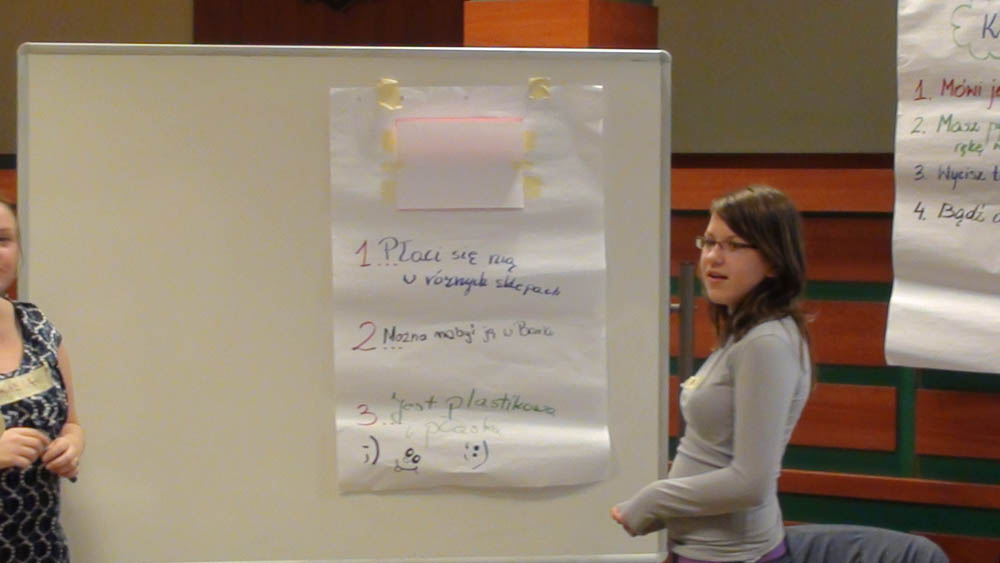 1. Płaci się nią
w różnych sklepach
2 Można nabyć ją w Banku
3. jest plastikowa
i płaska
;) (:)
K
1. Mówi je
2. Masz p
rękę w
3. Wycisz t
4. Bądź